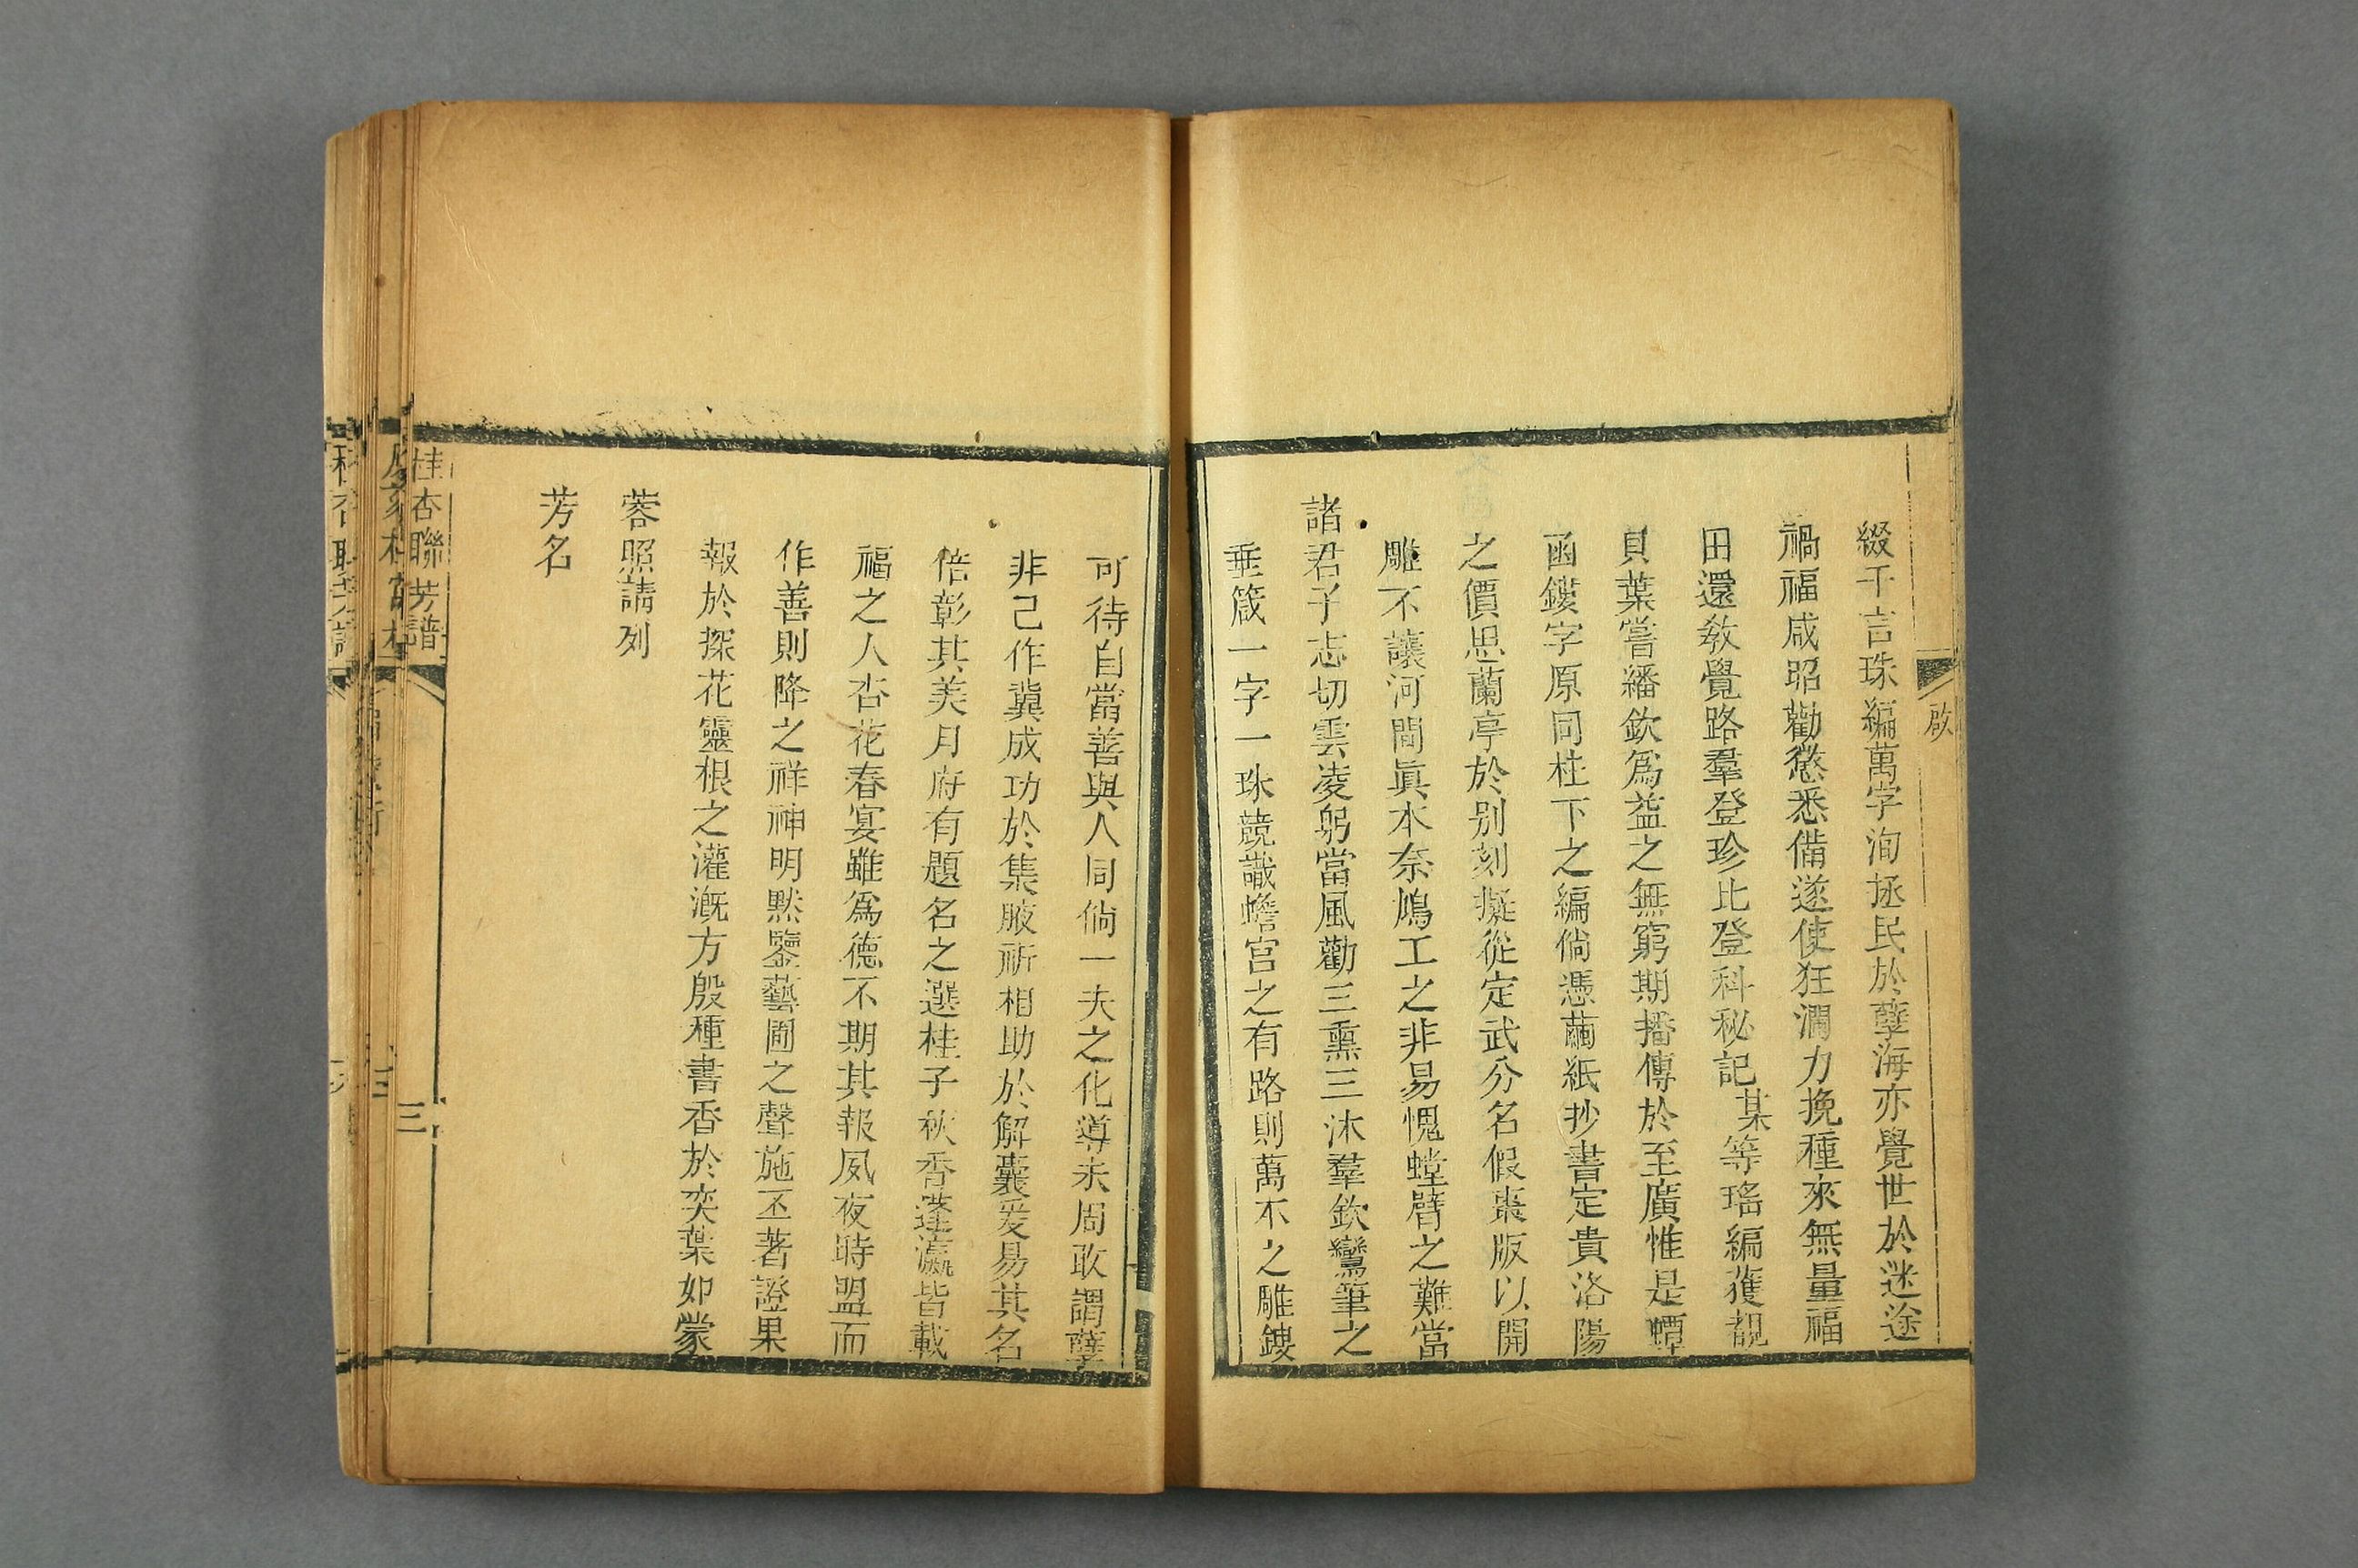 啟
綴千言珠編萬字洵拯民於孽海亦覺世於迷途
禍福咸昭勸懲悉備遂使狂瀾力挽種來無量福
田還敎覺路羣登珍比登科秘記某等瑤編獲覩
貝葉嘗繙欽爲益之無窮期播傳於至廣惟是蟫
函鏤字原同柱下之編倘憑繭紙抄書定貴洛陽
之價思蘭亭於別刻擬從定武分名假棗版以開
雕不讓河間眞本奈鳩工之非易愧螳臂之難當
諸君子志切雲凌躬當風勸三熏三沐羣欽鸞筆之
垂箴一字一珠競識蟾宮之有路則萬不之雕鏤
可待自當善與人同倘一夫之化導未周敢謂孽
非己作冀成功於集腋祈相助於解囊爰易其名
倍彰其美月府有題名之選桂子秋香蓬瀛皆載
福之人杏花春宴雖爲德不期其報夙夜時盟而
作善則降之祥神明默鑒藝圃之聲施丕著證果
報於探花靈根之灌漑方殷種書香於奕葉如蒙
蓉照請列
芳名
桂杏聯芳譜
三